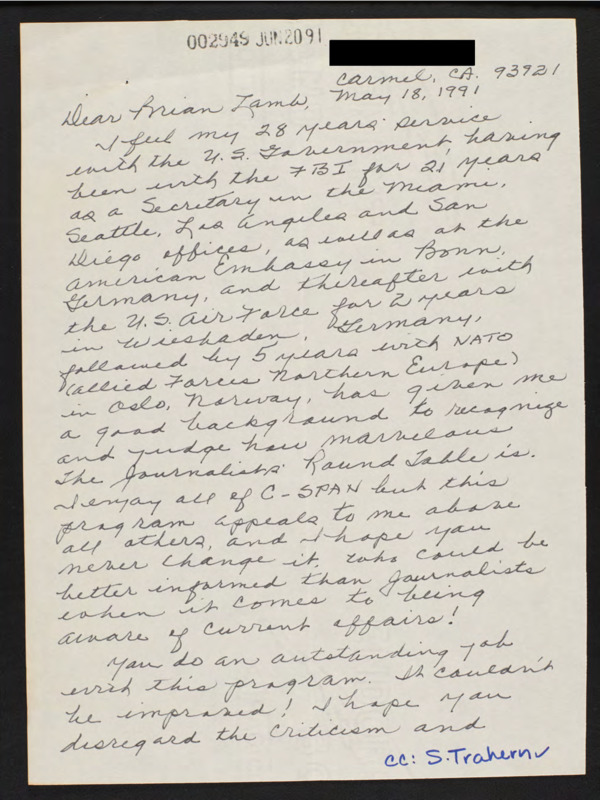 002949 JUN20 91
Carmel, CA. 93921
May 18, 1991
Dear Brian Lamb,
I feel my 28 years service
with the U.S. Government, having
been with the FBI for 21 years
as a Secretary in the Miami,
Seattle, Los Angeles and San
Diego offices, as well as at the
American Embassy in Bonn,
Germany, and thereafter with
the U.S. Air Force for 2 years
in Wiesbaden, Germany,
followed by 5 years with NATO
(Allied Forces Northern Europe)
in Oslo, Norway, has given me
a good background to recognize
and judge how marvelous
The Journalists Round Table is.
I enjoy all of C-SPAN but this
program appeals to me above
all others, and I hope you
never change it. Who could be
better informed than journalists
when it comes to being
aware of current affairs!
You do an outstanding job
with this program. It couldn't
be improved! I hope you
disregard the criticism and
cc: S. Trahern